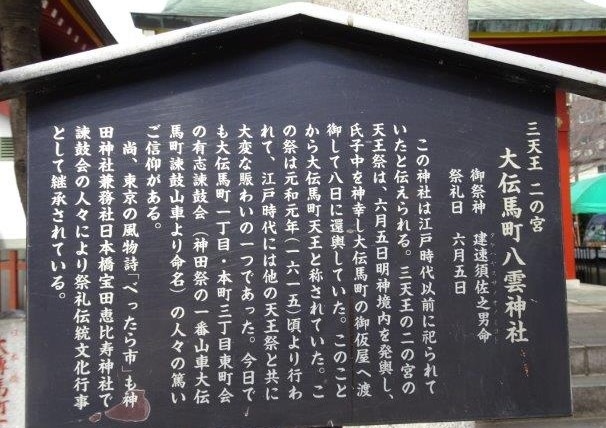 三天王 二の宮
大伝馬町八雲神社
御祭神 建速須佐之男命
祭礼日 六月五日
この神社は江戸時代以前に祀られて
いたと伝えられる。三天王の二の宮の
天王祭は、六月五日明神境内を発輿し、
氏子中を神幸し大伝馬町の御仮屋へ渡
御して八日に還輿していた。このこと
から大伝馬町天王と称されていた。こ
の祭は元和元年(一六一五)頃より行わ
れて、江戸時代には他の天王祭と共に
大変な賑わいの一つであった。今日で
も大伝馬町一丁目・本町三丁目東町会
の有志諫鼓会(神田祭の一番山車大伝
馬町諫鼓山車より命名)の人々の篤い
ご信仰がある。
尚、東京の風物詩「べったら市」も神
田神社兼務社日本橋宝田恵比寿神社で
諫鼓会の人々により祭礼伝統文化行事
として継承されている。